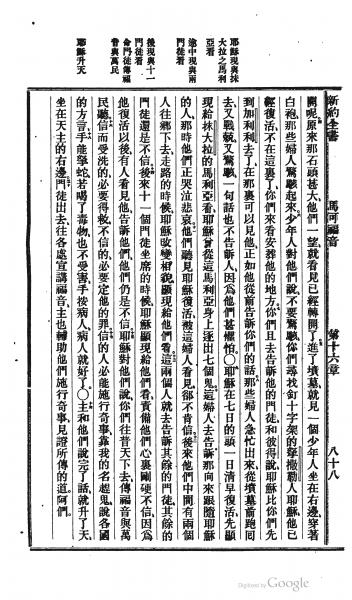 耶穌現與抹
大拉之馬利
亞看
途中現與兩
門徒看
後現與十一
門徒看
命門徒傳福
音與萬民
耶穌升天
新約全書
馬可福音
第十六章
八十八
開呢、原來那石頭甚大、他們一望、就看見已經轉開了、進了墳墓、就見一個少年人坐在右邊、穿著
白袍、那些婦人驚駭起來、少年人對他們說、不要驚駭、你們尋找釘十字架的拿撒勒人耶穌、他已
經復活、不在這裏了、你們來看安葬他的地方、你們且去告訴他的門徒、和彼得說、耶穌比你們先
到加利利去了、在那裏可以見他、正如他從前告訴你們的話、那些婦人急忙出來、從墳墓前跑回
去、又戰兢、又驚駭、一句話也不告訴人、因為他們甚懼怕、〇耶穌在七日的頭一日清早復活、先顯
現給抹大拉的馬利亞看、耶穌曾從這馬利亞身上逐出七個鬼、這婦人去告訴那向來跟隨耶穌
的人、那時他們正哭泣悲哀、他們聽見耶穌復活、被這婦人看見、卻不肯信、後來他們中間有兩個
人往鄉下去、走路的時候、耶穌改變相貌、顯現給他們看、這兩個人就去告訴其餘的門徒、其餘的
門徒還是不信、後來十一個門徒坐席的時候、耶穌顯現給他們看、責備他們心裏剛硬不信、因為
他復活以後、有人看見他、告訴他們、他們仍是不信、耶穌對他們說、你們往普天下去、傳福音與萬
民聽、信而受洗的、必要得救、不信的、必要定他的罪、信的人必能施行奇事、靠我的名趕鬼、說各國
的方言、手能拏蛇、若喝了毒物、也不受害、手按病人、病人就好了、〇主和他們說完了話、就升了天、
坐在天主的右邊、門徒出去、往各處宣講福音、主也輔助他們施行奇事、見證所傳的道、阿們、
Digitized by Google